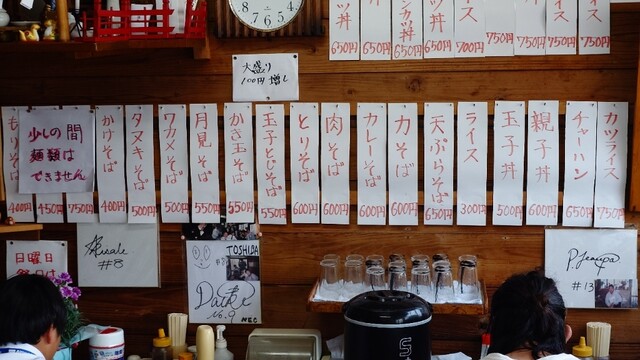 8 7 6 5 4
丼
650円
650円
カツ丼
650円
丼
650円
ライス
700円
750円
750円
イス
750円
ス
750円
大盛り
100円増し
もりそば
400円
450円
750円
少しの間
麺類は
できません
かけそば
400円
タヌキそば
500円
ワカメそば
500円
月見そば
550円
かき玉そば
550円
玉子とじそば
550円
とりそば
600円
肉そば
600円
カレーそば
600円
力そば
600円
天ぷらそば
650円
ライス
300円
玉子丼
500円
親子丼
600円
チャーハン
650円
カツライス
750円
日曜日
#8
TOSHIDA
16.9
NEC
#13
S